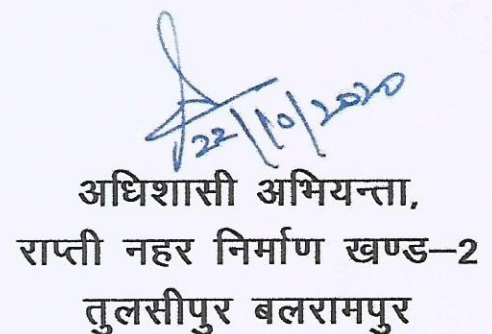 22/10/2020
अधिशासी अभियन्ता,
राप्ती नहर निर्माण खण्ड–2
तुलसीपुर बलरामपुर